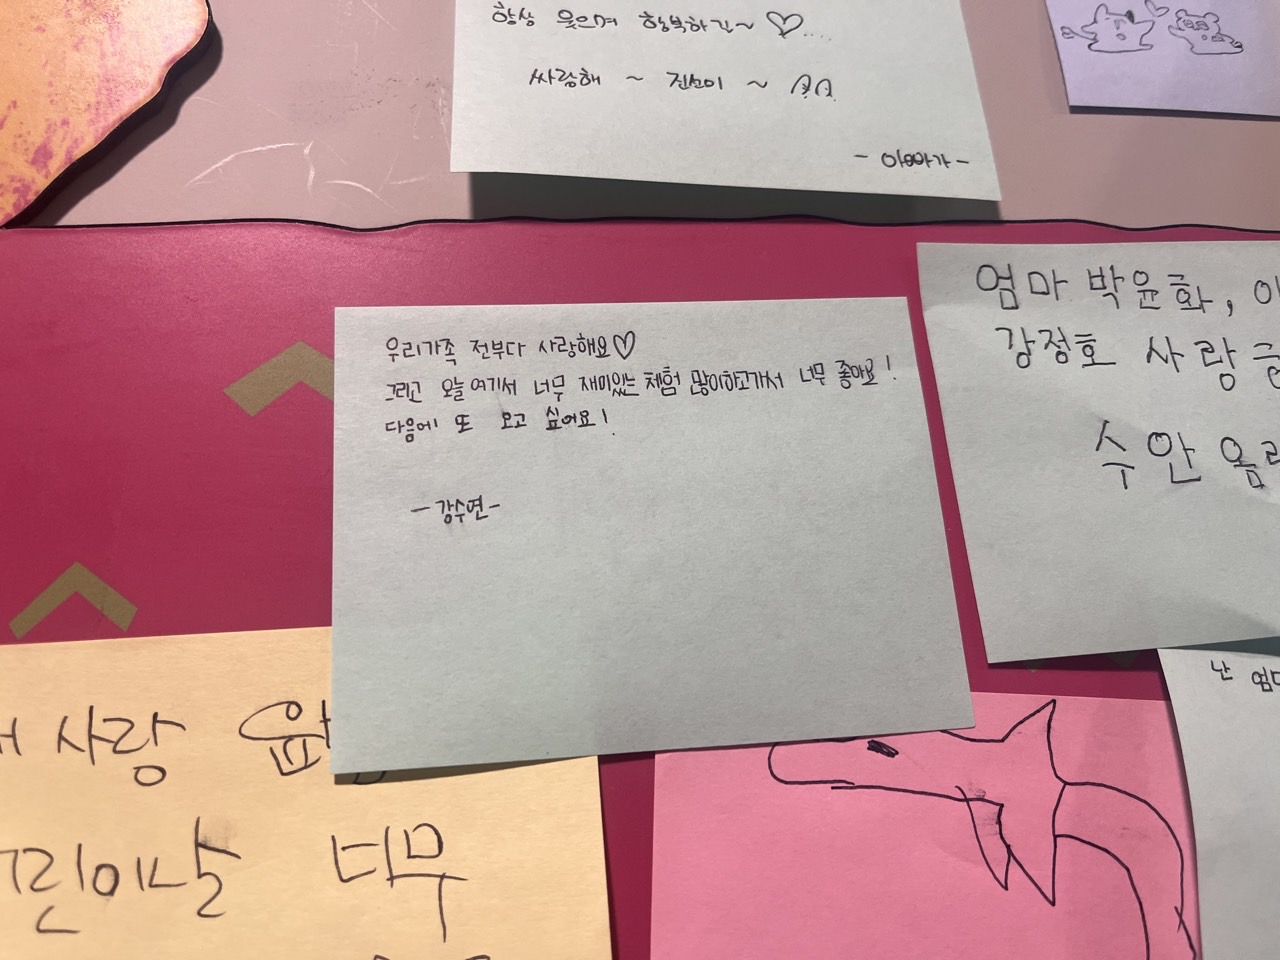 항상 웃으며 행복하길~♡.....
싸랑해 ~ 진선이 ~
- 아빠가 -
우리가족 전부다 사랑해요♡
그리고 오늘 여기서 너무 재미있는 체험 많이하고가서 너무 좋아요!
다음에 또 오고 싶어요!
- 강수연 -
엄마 박윤화,
강정호 사랑
수안
사랑
린이날 너무
난